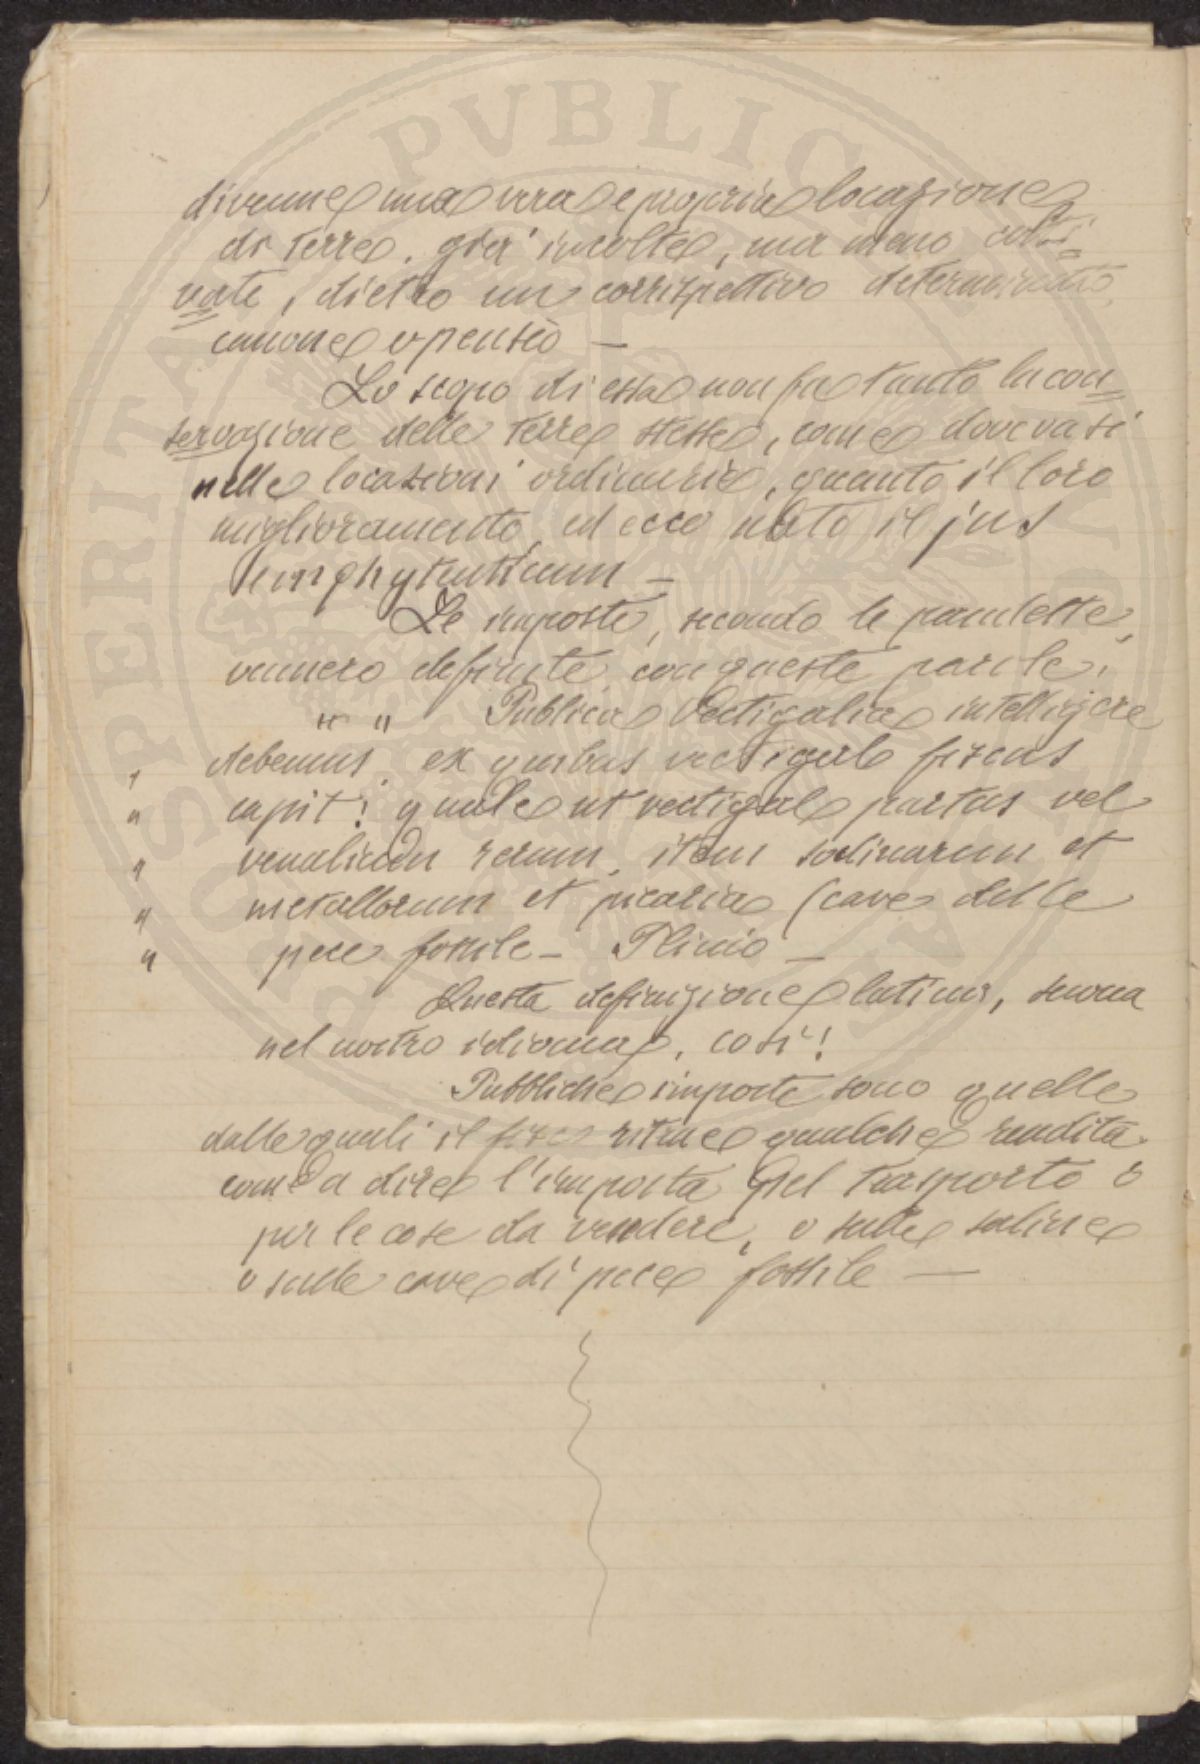 divenne una vera e propria locazione
di terre, già incolte, ma meno colti=
vate, dietro un corrispettivo determinato,
canone o pensio —
Lo scopo di essa non fu tanto la con=
servazione delle terre stesse, come dovevasi
nelle locazioni ordinarie, quanto il loro
miglioramento, ed ecco nato il jus
emphyteuticum —
Le imposte, secondo le pandette,
vennero definite con queste parole:
" " Publica Vectigalia intelligere
" debemus, ex quibus vectigale fiscus
" capit: quale ut vectigale portus vel
" venalicium rerum, item salinarum et
" metallorum et picaria (cave delle
" pece fossile — Plinio —
Questa definizione latina, suona
nel nostro idioma, così!
Pubbliche imposte sono quelle
dalle quali il fisco ritrae qualche rendita
come a dire l'imposta pel trasporto o
per le cose da vendere, o sulle saline
o sulle cave di pece fossile —